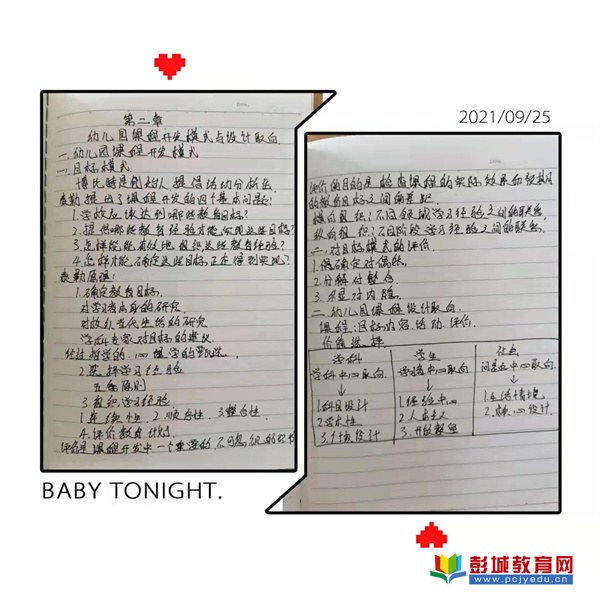 第二章
幼儿园课程开发模式与设计取向.
一.幼儿园课程开发模式
一.目标模式
博比特是创始人,提倡活动分析法
泰勒提出了课程开发的四个基本问题:
1.学校应该达到哪些教育目标?
2.提供哪些教育经验才能实现这些目标?
3.怎样才能有效地组织这些教育经验?
4.怎样才能确定这些目标正在得到实现?
泰勒原理:
1.确定教育目标.
对学习者本身的研究
对校外当代生活的研究
学科专家对目标的建议
2.选择学习经验
五条原则
3.组织学习经验
1.连续性. 2.顺序性. 3.整合性
4.评价教育计划.
评价是课程开发中一个重要的,不可忽视的
评价的目的是检查课程的实际效果与预期
的教育目标之间的差距.
横向组织:不同领域学习经验之间的联系
纵向组织:不同阶段学习经验之间的联系.
二.对目标模式的评价.
1.偶然
2.分解对整合
3.对内隐.
二.幼儿园课程设计取向.
课程:目标内容活动.评价.
价值选择
学科 学生 社会
学科中心取向. 学习者中心取向 问题中心取向.
1.科目设计 1.经验中心 1.生活情境
2.学术性 2.人本主义 2.核心设计.
3. 设计 3.开放教室
2021/09/25
BABY TONIGHT.
彭城教育网
www.pcjyedu.cn